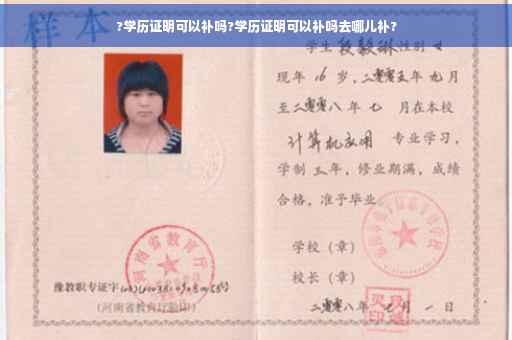 ?学历证明可以补吗?学历证明可以补吗去哪儿补?
样本
学生 段毅琳 性别 女
现年 16 岁,二零零五年 九 月
至二零零八 年 七 月在本校
计算机应用 专业学习,
学制 三 年,修业期满,成绩
合格,准予毕业
学校(章)
校长(章)
二零零八年 月 一 日
豫教职专证字
(河南省教育厅验印)
河南省教育厅